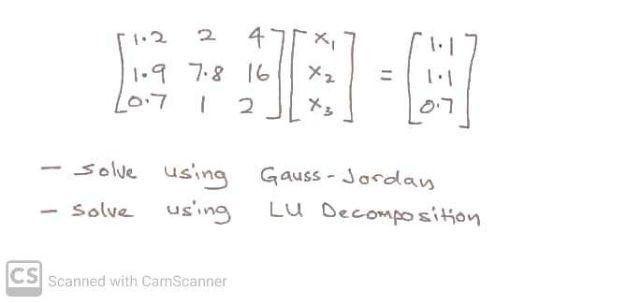 [1.2 2 4] [x₁] [1.1]
[1.9 7.8 16] [x₂] = [1.1]
[0.7 1 2] [x₃] [0.7]
- Solve using Gauss-Jordan
- Solve using LU Decomposition
CS Scanned with CamScanner